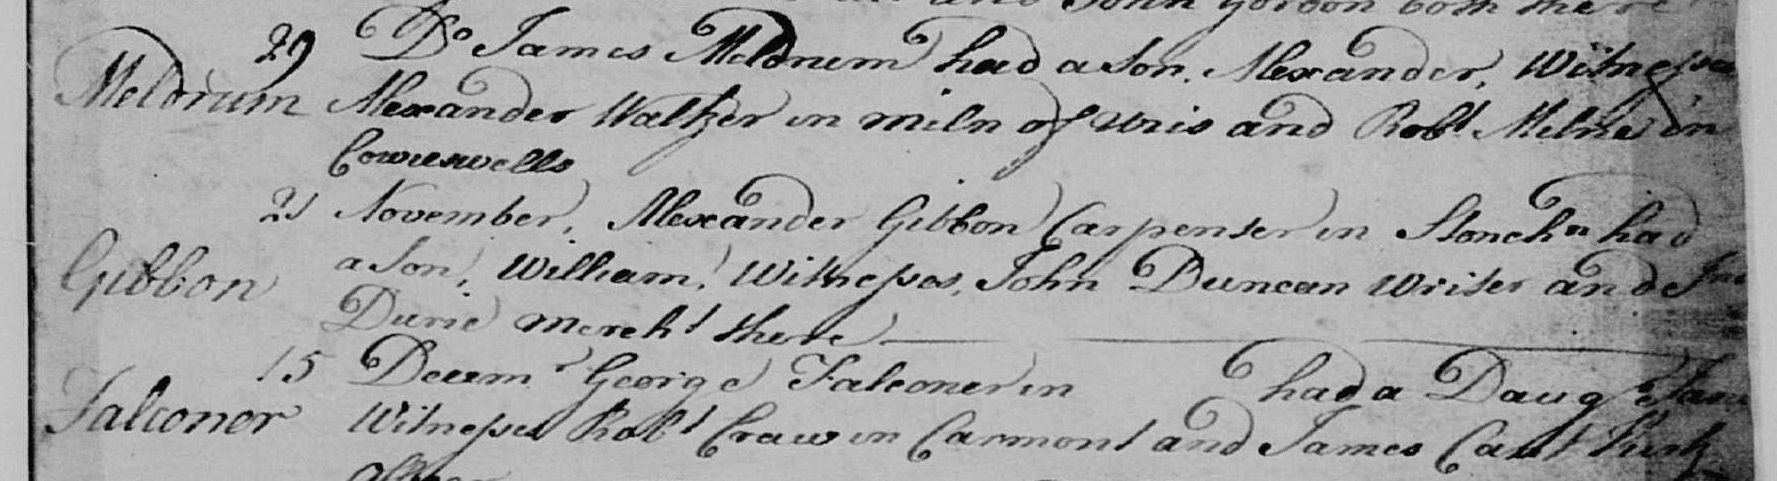 and John Gordon both there
29 Do James Meldrum had a Son, Alexander, Witnesses
Meldrum Alexander Walker in miln of Uris and Robt Milne in
Cowieswells
21 November, Alexander Gibbon Carpenter in Stonehn had
Gibbon a Son, William, Witnesses, John Duncan Writer and
Durie mercht there
15 Decemr George Falconer in had a Daugr
Falconer Witnesses Robt Craw in Carmont and James Caut